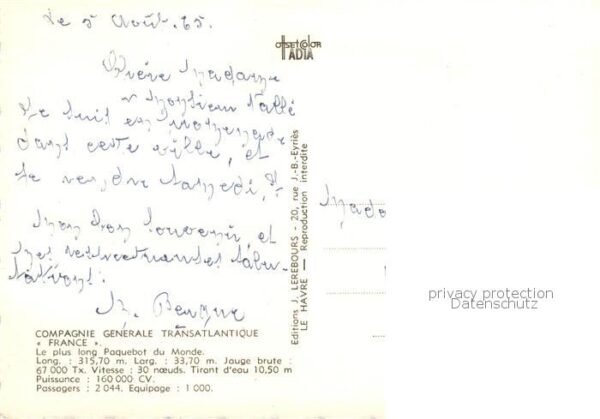 Le 5 Août. 65.
OFFSETCOLOR
TADIA
Chère Madame
Monsieur l'abbé
Je suis en
dans cette ville, et
Mon bon souvenir, et
mes respectueuses salu-
tations.
Editions J. LEREBOURS - 20, rue J.-B.-Eyriès
LE HAVRE — Reproduction interdite
Mada
privacy protection
Datenschutz
COMPAGNIE GÉNÉRALE TRANSATLANTIQUE
« FRANCE ».
Le plus long Paquebot du Monde.
Long. : 315,70 m. Larg. : 33,70 m. Jauge brute :
67 000 Tx. Vitesse : 30 nœuds. Tirant d'eau 10,50 m
Puissance : 160 000 CV.
Passagers : 2 044. Equipage : 1 000.